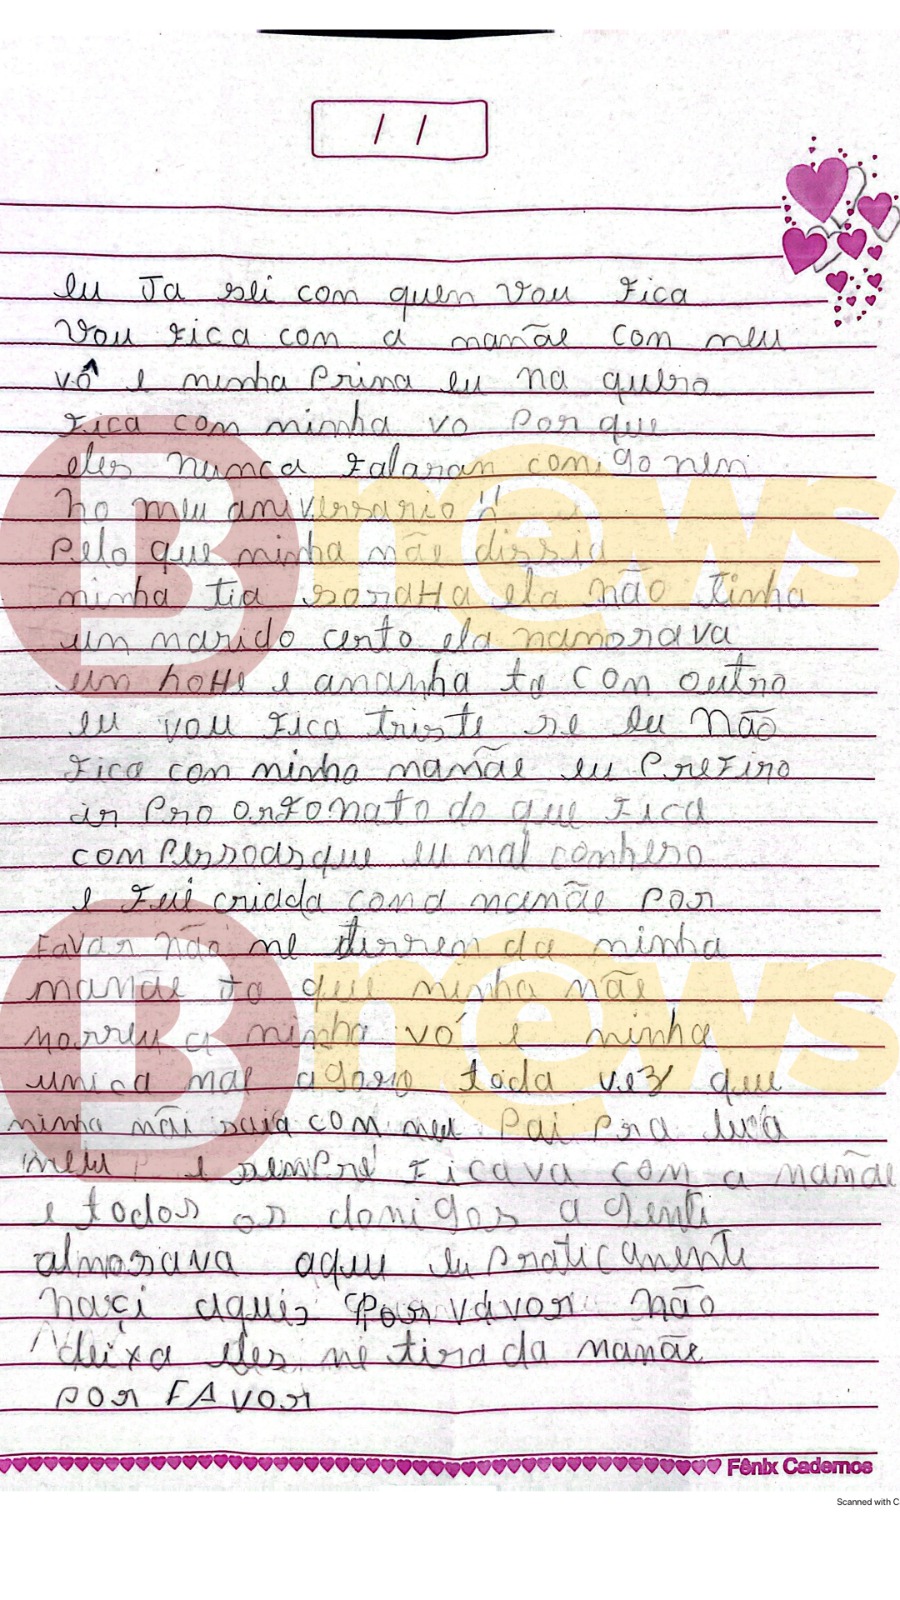 / /
eu Ja sei com quen vou fica
Vou fica com a mamãe com meu
vô e minha Prima eu na quero
fica com minha vo Porque
eles nunca falaran comigo nem
no meu aniversario
Pelo que minha mãe dissia
minha tia ela não tinha
um marido certo ela namorava
um hoHe e amanha ta com outro
eu vou fica triste se eu Não
fica com minha mamãe eu Prefiro
ir Pro orfonato do que fica
com Pessoas que eu mal conheso
e fui criada com a mamãe Por
Favor não me da minha
mamãe ta que minha mãe
morreu a minha vó e minha
unica mae agora toda vez que
minha mãi saia com meu Pai Pra
e sempre ficava com a mamãe
e todos os domigos a genti
almosava aqui eu Praticamente
naci aqui Por vavor não
deixa eles me tira da mamãe
POR FAVOR
Fênix Cadernos
Scanned with C
Bnews
Bnews